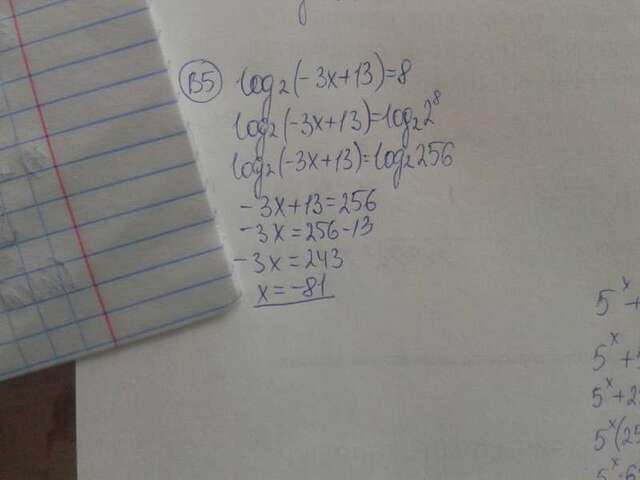 B5 log₂(-3x+13)=8
log₂(-3x+13)=log₂2⁸
log₂(-3x+13)=log₂256
-3x+13=256
-3x=256-13
-3x=243
x=-81
5ˣ+
5ˣ+
5ˣ+2
5ˣ(25
5ˣ·6